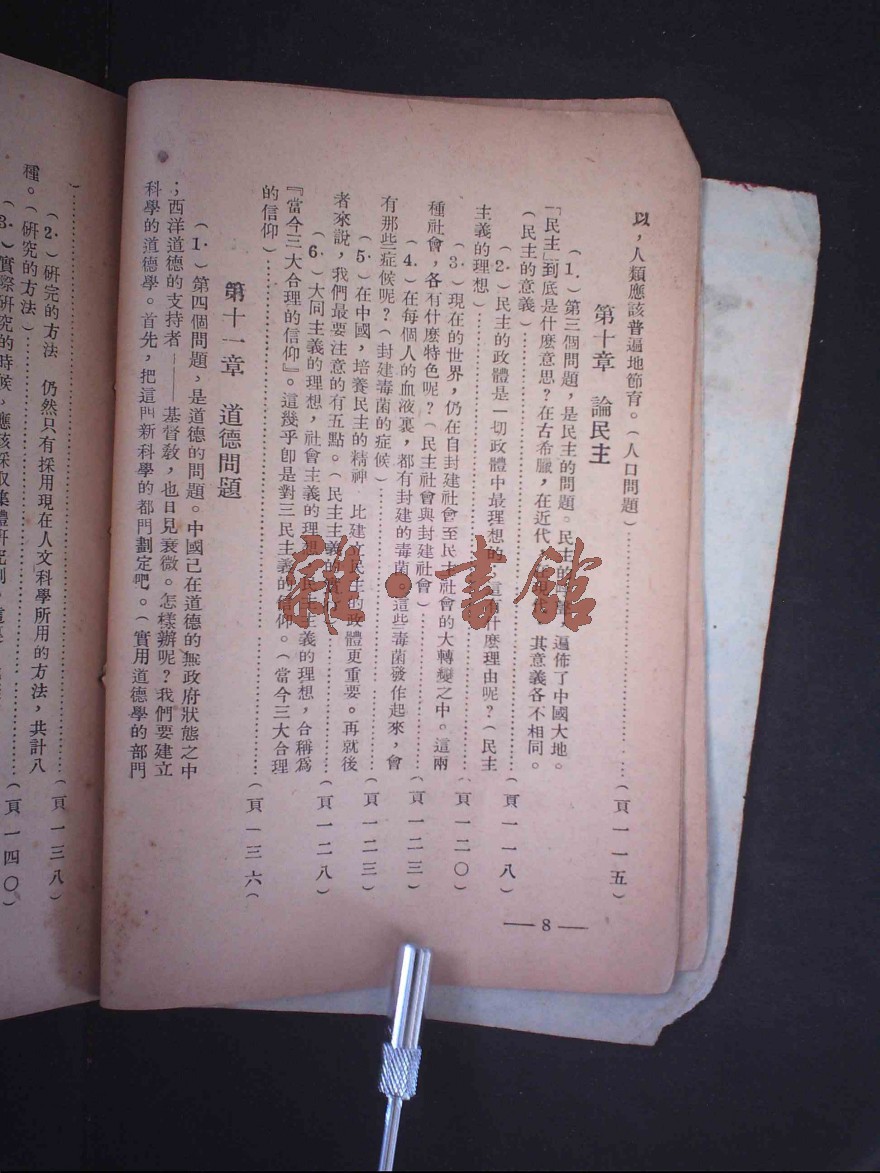 以，人類應該普遍地節育。(人口問題)……(頁一一五)
第十章　論民主
(1.)第三個問題，是民主的問題。民主的　　，遍佈了中國大地。
「民主」到底是什麼意思？在古希臘，在近代，　現代，其意義各不相同。
(民主的意義)……(頁一一八)
(2.)民主的政體是一切政體中最理想的，這有什麼理由呢？(民主
主義的理想)……(頁一二〇)
(3.)現在的世界，仍在自封建社會至民主社會的大轉變之中。這兩
種社會，各有什麼特色呢？(民主社會與封建社會)……(頁一二三)
(4.)在每個人的血液裏，都有封建的毒菌。這些毒菌發作起來，會
有那些症候呢？(封建毒菌的症候)……(頁一二三)
(5.)在中國，培養民主的精神　比建立民主的政體更重要。再就後
者來說，我們最要注意的有五點。(民主主義的　　)……(頁一二八)
(6.)大同主義的理想，社會主義的理想，民主主義的理想，合稱爲
『當今三大合理的信仰』。這幾乎卽是對三民主義的信仰。(當今三大合理
的信仰)……(頁一三六(
第十一章　道德問題
(1.)第四個問題，是道德的問題。中國已在道德的無政府狀態之中
；西洋道德的支持者——基督敎，也日見衰微。怎樣辦呢？我們要建立
科學的道德學。首先，把這門新科學的都門劃定吧。(實用道德學的部門
—8—
)……(頁一三八)
(2.)研究的方法　仍然只有採用現在人文科學所用的方法，共計八
種。(研究的方法)……(頁一四〇)
(3.)實際研究的時候，應該採取集體研究制。這
雜·書館